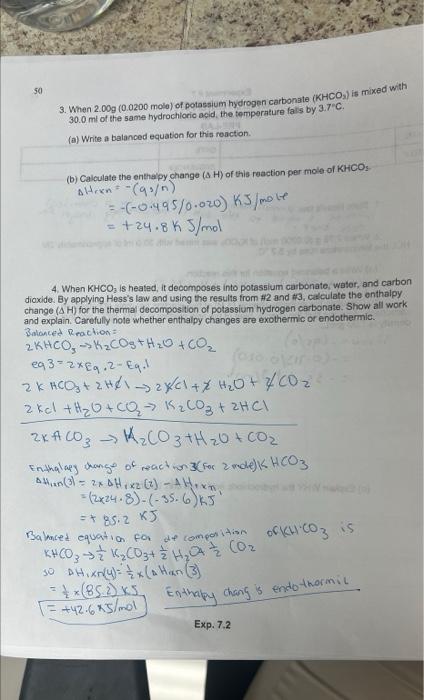 50
3. When 2.00g (0.0200 mole) of potassium hydrogen carbonate (KHCO₃) is mixed with
30.0 ml of the same hydrochloric acid, the temperature falls by 3.7°C.
(a) Write a balanced equation for this reaction.
(b) Calculate the enthalpy change (Δ H) of this reaction per mole of KHCO₃.
ΔHrxn = -(qs/n)
= -(-0.495/0.020) KJ/mole
= +24.8 K J/mol
4. When KHCO₃ is heated, it decomposes into potassium carbonate, water, and carbon
dioxide. By applying Hess's law and using the results from #2 and #3, calculate the enthalpy
change (Δ H) for the thermal decomposition of potassium hydrogen carbonate. Show all work
and explain. Carefully note whether enthalpy changes are exothermic or endothermic.
Balanced Reaction:
2KHCO₃ → K₂CO₃ + H₂O + CO₂
eq 3 = 2 x Eq.2 - Eq.1
2K HCO₃ + 2HCl → 2KCl + 2 H₂O + 2CO₂
2KCl + H₂O + CO₂ → K₂CO₃ + 2HCl
→ K₂CO₃ + H₂O + CO₂
Enthalpy change of reaction 3 (for 2 mole) KHCO3
= (2x24.8) - (-35.6) KJ
= + 85.2 KJ
Balanced equation for decomposition of KHCO3 is
KHCO₃ → ½ K₂CO₃ + ½ H₂O + ½ CO₂
so
= ½ x (85.2) KJ
= +42.6 KJ/mol
Enthalpy chang is endothermic
Exp. 7.2